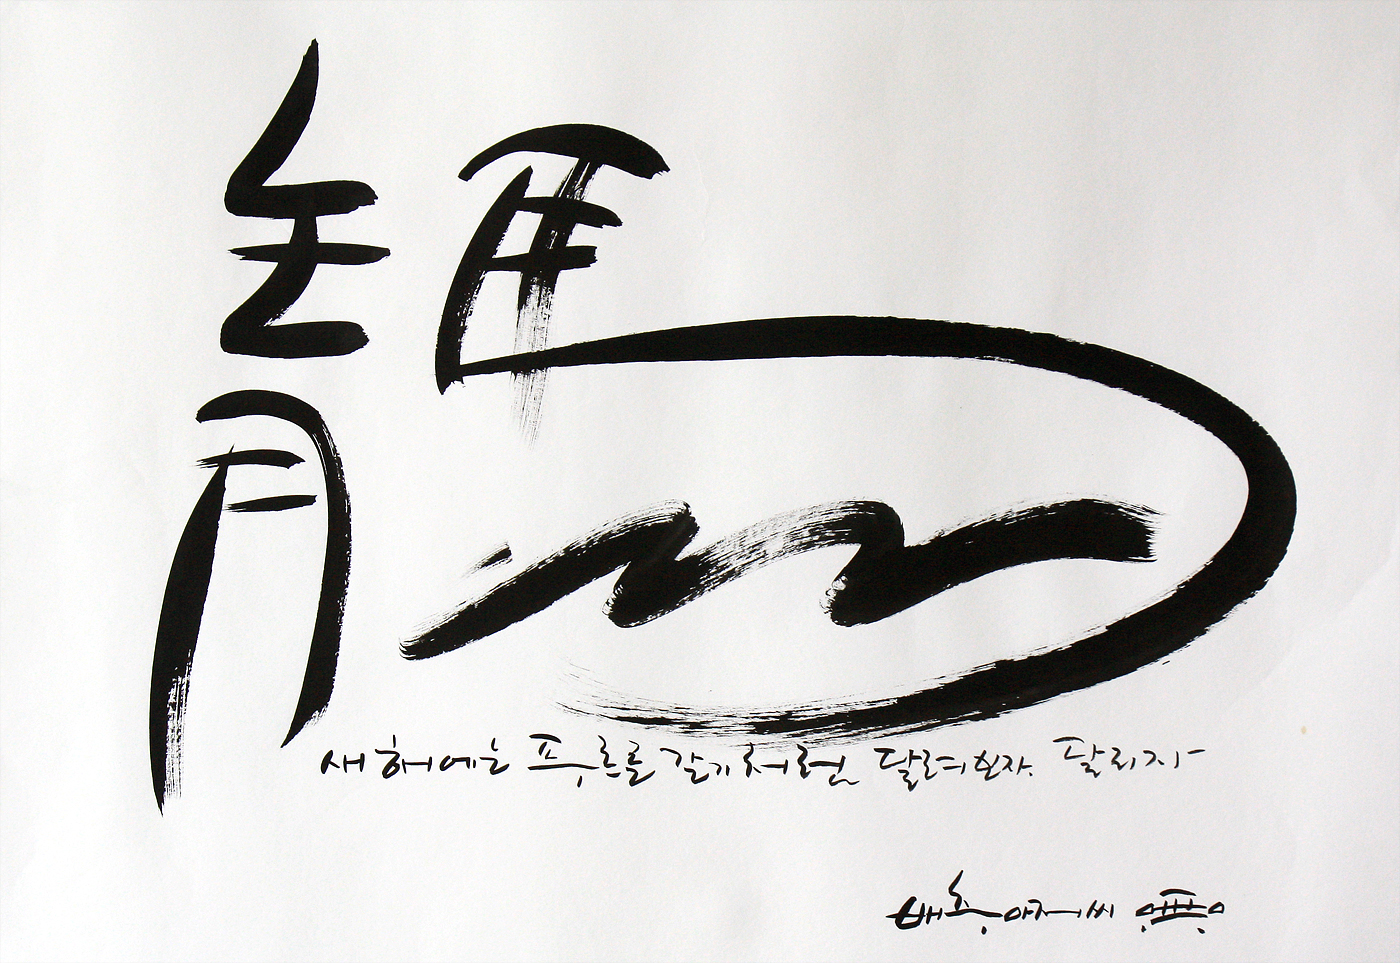 靑馬
새해에는 푸르른 갈기처럼 달려보자. 달리자
배추아저씨